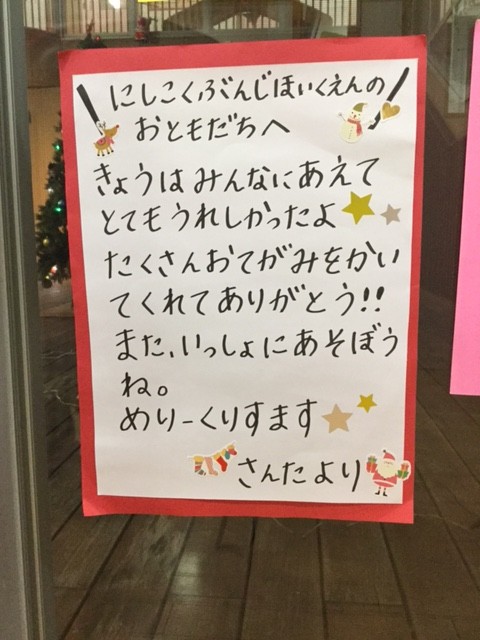 にしこくぶんじほいくえんの
おともだちへ
きょうはみんなにあえて
とてもうれしかったよ
たくさんおてがみをかい
てくれてありがとう!!
また、いっしょにあそぼう
ね。
めりーくりすます
さんたより